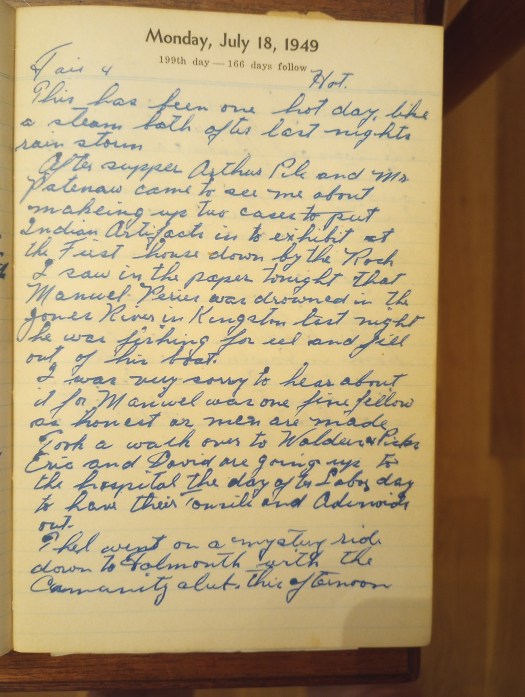 Monday, July 18, 1949
199th day — 166 days follow
Fair & Hot.
This has been one hot day, like
a steam bath after last nights
rain storm
After supper Arthur Pyle and Mr
Patenaw came to see me about
makeing up two cases to put
Indian Artifacts in to exhibit at
the First house down by the Rock
I saw in the paper tonight that
Manuel Peries was drowned in the
Jones River in Kingston last night
he was fishing for eel and fell
out of his boat.
I was very sorry to hear about
it for Manuel was one fine fellow
as honest as men are made
Took a walk over to Walden &
Eric and David are going up to
the hospital the day after Labor day
to have their Tonsils and Adinoids
out.
went on a mystery ride
down to Falmouth with the
Community club this afternoon